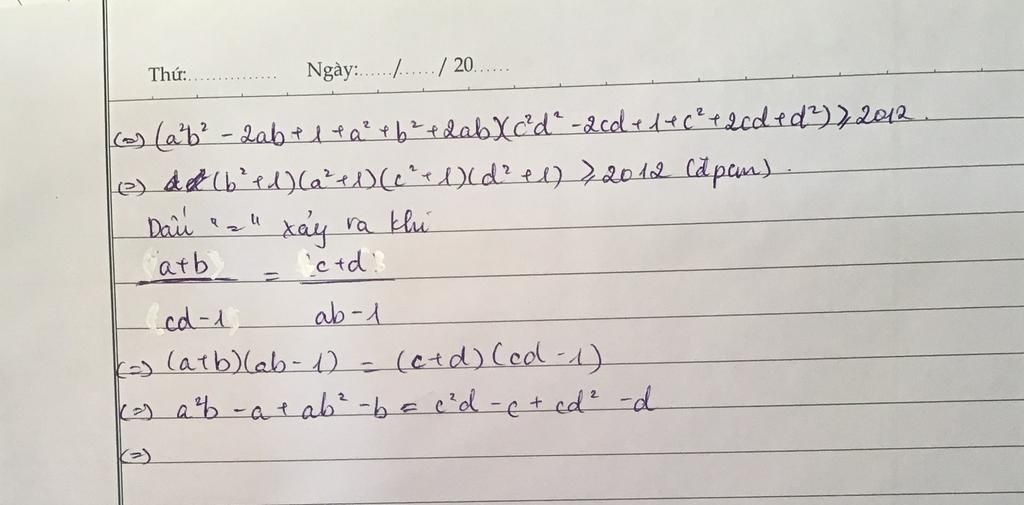 Thứ:............... Ngày:....../....../ 20......
(=) (a²b² - 2ab + 1 + a² + b² + 2ab)(c²d² - 2cd + 1 + c² + 2cd + d²) ⩾ 2012.
(=) (b² + 1)(a² + 1)(c² + 1)(d² + 1) ⩾ 2012 (đpcm).
Dấu "=" xảy ra khi
a+b = c+d
cd - 1 ab - 1
(=) (a+b)(ab - 1) = (c+d)(cd - 1)
(=) a²b - a + ab² - b = c²d - c + cd² - d
(=)